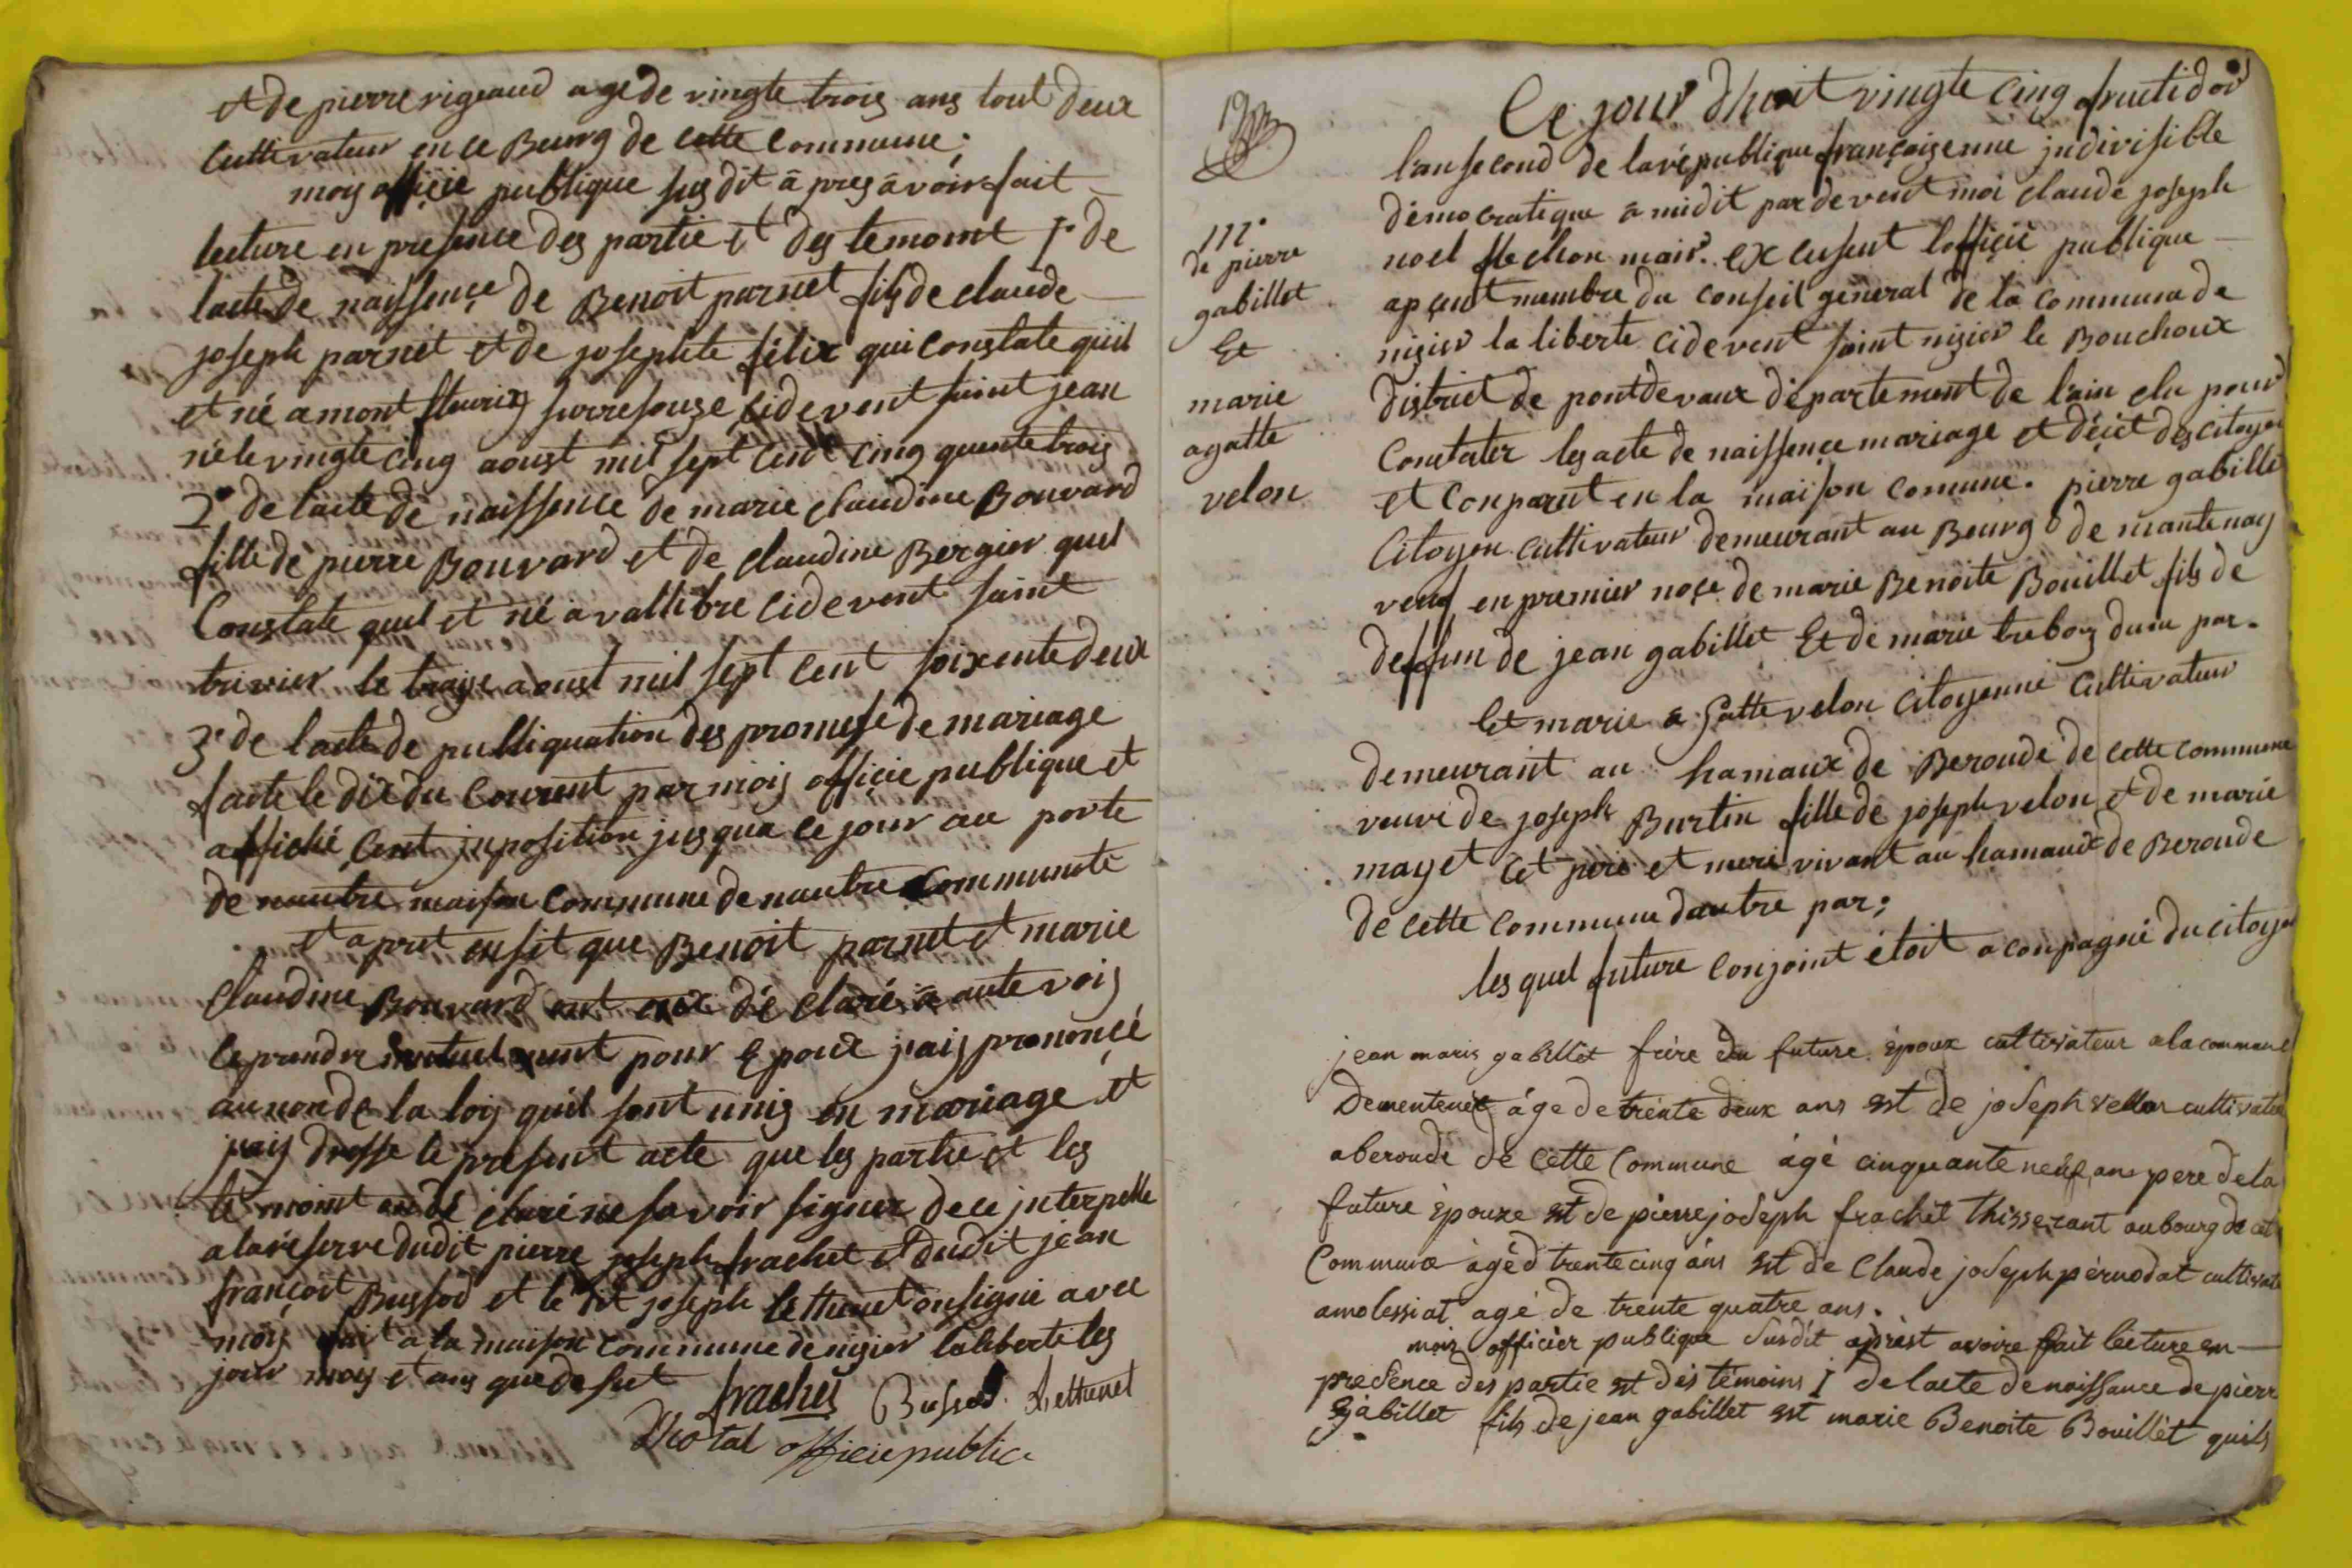 et de pierre rigeaud age de vingte trois ans tout deux
Cultivateur en ce Bourg de cette Commune;
moy officie publique sus dit â pres âvoir fait
lecture en presence des partie et des temoint 1° de
lacte de naissence de Benoit parnet fils de claude
joseph parnet et de josephte félix qui constate quil
et né a mont fleurix surresouze cidevent saint jean
né le vingte cinq aoust mil sept cent cinq quente trois
2° de lacte de naissence de marie claudine Bouvard
fille de pierre Bouvard et de claudine Bergier quel
Constate quel et né a vallibre cidevent saint
trivier le traize aoust mil sept cent soixente deux
3° de lacte de publiquation des promese de mariage
faite le dix du Courent par mois officie publique et
affiché cent inposition jusqua ce jour au porte
de nautre maison Commune de nautre Communote
et apret ensit que Benoit parnet et marie
claudine Bouvard ont dé claré a aute vois
le prendre mutuel ment pour Epoux jais prononçé
au non de la lois quil sont unis en mariage et
jais dresse le present acte que les partie et les
te moint on dé claré ne savoir signer de ce interpelle
a la réserve dudit pierre joseph frachet et dudit jean
françoit Bussod et le dit joseph lethenet onsigne avec
mois fait a la maison commune de nisier laliberte les
jour mois et ans que desut
frachet Bussod Lethenet
officie public
Ce jour dhuit vingte cinq fructidor
lan second de la république françaisenne indivisible
démocratique a midit par devent moi claude joseph
noel flechon mair. ex cusent lofficié publique
apçent mambre du conseil géneral de la commune de
nizier la liberte cidevent saint nizier le Bouchoux
district de pontdevaux département de lain elu pour
Constater les acte de naissence mariage et déçet des citoyen
et Conparut en la maison comune. pierre gabillet
Citoyen cultivateur demeurant au Bourg de mantenay
veuf en premier nose de marie Benoite Bouillet fils de
deffun de jean gabillet Et de marie treboz dune par.
111°
de pierre
gabillet
Et
marie
agatte
velon
Et marie a gatte velon Citoyenne Cultivateur
demeurant au hamaux de Beroude de cette commune
veuve de joseph Burtin fille de joseph velon et de marie
mayet cet pere et mere vivant au hamaux de Beroude
de cette Commune dautre par;
les quel future conjoint étoit a conpagné du citoyen
jean marie gabillet frère du future époux cultivateur a la commune
Dementenét áge de trente deux ans est de joseph vellon cultivateu
aberoude de cette Commune ágé cinquante neuf ans pere de la
future épouxe est de pierre joseph frachet thisserant au bourg de cet
Commune àgéd trente cinq áns est de Claude joseph pérnodat cultivate
amolessiat agé de trente quatre ans.
mois officier publique Susdit aprest avoire fait lecture en
presence des partie est des témoins 1 de lacte de naissance de pierr
gabillet fils de jean gabillet est marie Benoite Bouillet quils